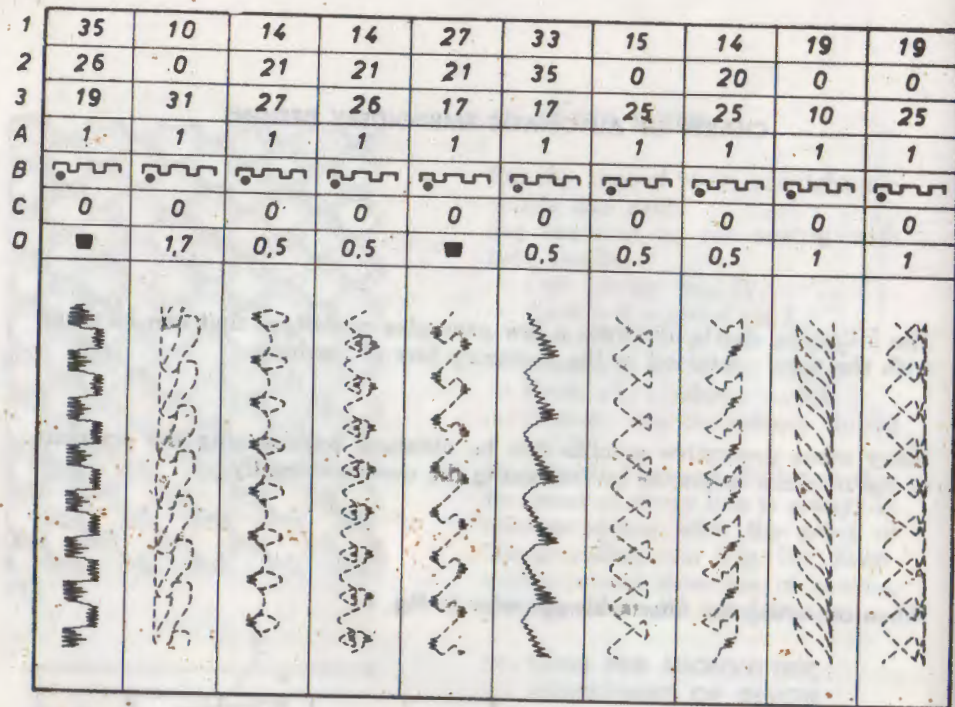 1 35 10 14 14 27 33 15 14 19 19
2 26 0 21 21 21 35 0 20 0 0
3 19 31 27 26 17 17 25 25 10 25
A 1 1 1 1 1 1 1 1 1 1
B
C 0 0 0 0 0 0 0 0 0 0
0 1,7 0,5 0,5 0,5 0,5 0,5 1 1